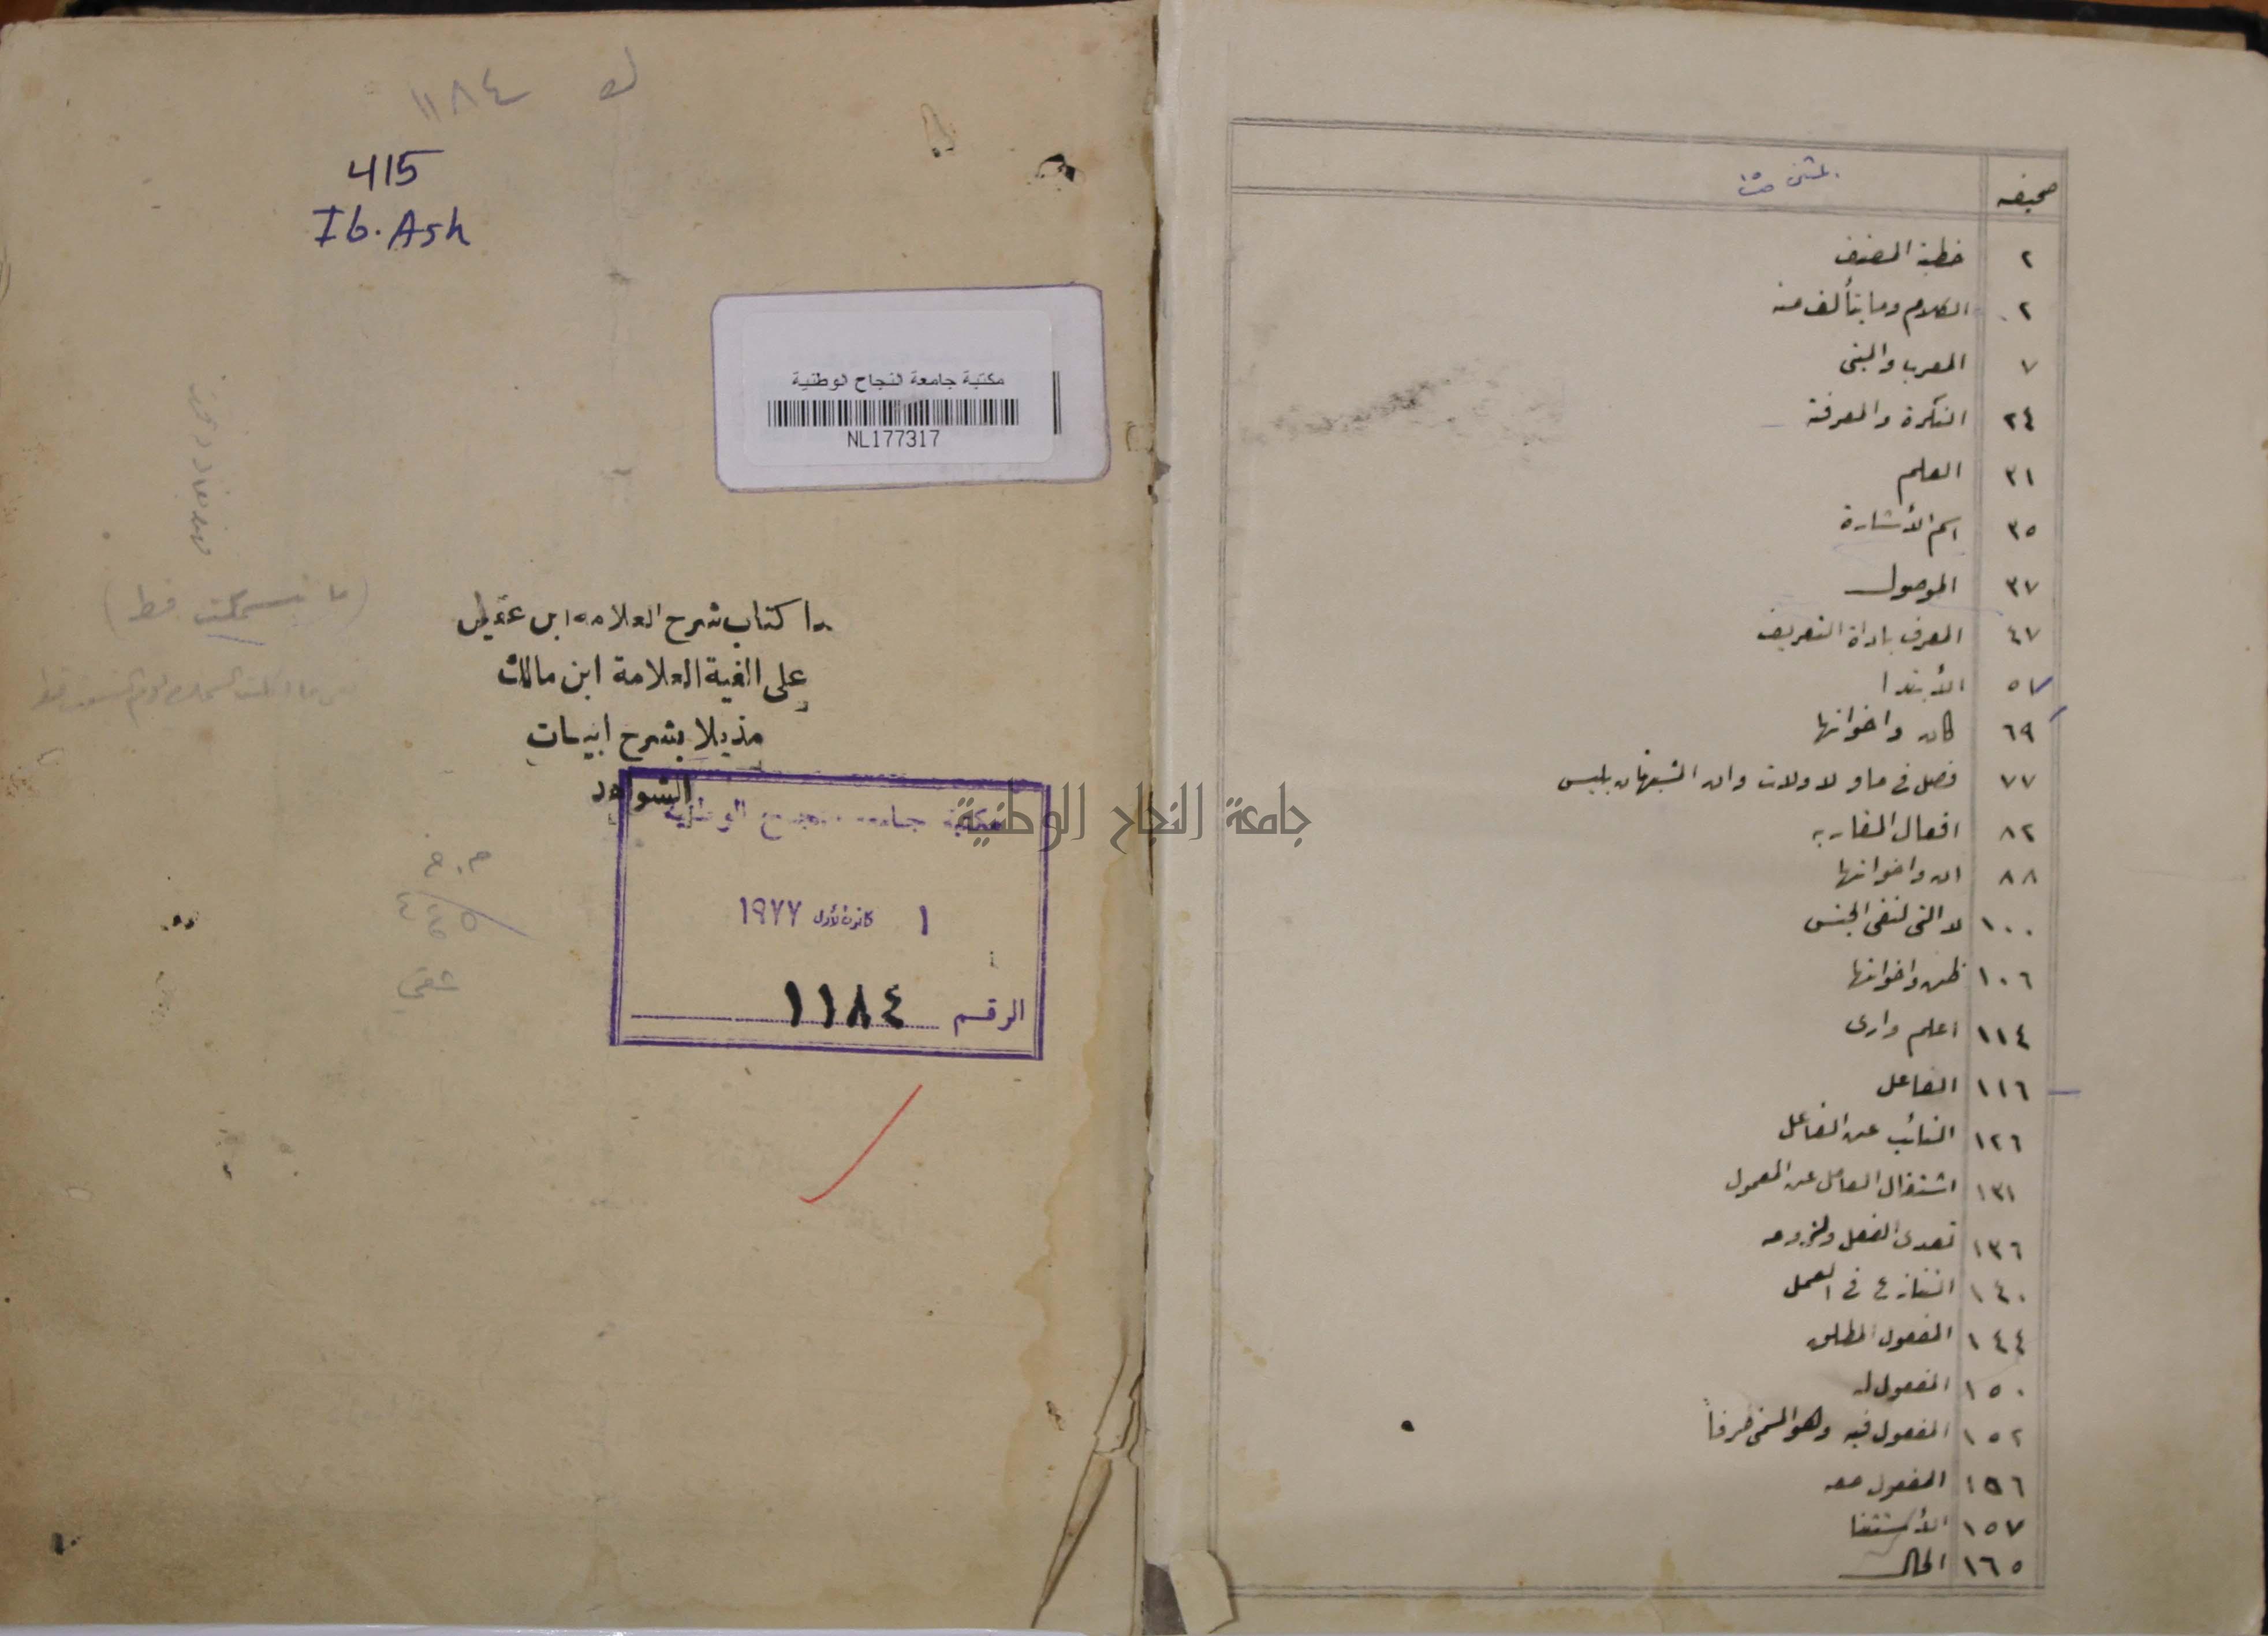 صحيفه
٢ خطبة المصنف
٢ الكلام وما يتألف منه
٧ المعرب والمبنى
٢٤ النكرة والمعرفة
٣١ العلم
٣٥ اسم الأشارة
٣٧ الموصول
٤٧ المعرف باداة التعريف
٥٧ الأبتدا
٦٩ كان واخواتها
٧٧ فصل فى ما ولا ولات وان المشبهات بليس
٨٢ افعال المقاربه
٨٨ ان واخواتها
١٠٠ لا التى لنفى الجنس
١٠٦ ظن واخواتها
١١٤ اعلم وارى
١١٦ الفاعل
١٢٦ النائب عن الفاعل
١٣١ اشتغال العامل عن المعمول
١٣٦ تعدى الفعل ولزومه
١٤٠ التنازع فى العمل
١٤٤ المفعول المطلق
١٥٠ المفعول له
١٥٢ المفعول فيه وهو المسمى ظرفاً
١٥٦ المفعول معه
١٥٧ الأستثنا
١٦٥ الحال
١١٨٤
415
Ib. Ash
مكتبة جامعة النجاح الوطنية
NL177317
كتاب شرح العلامه ابن عقيل
على الفية العلامة ابن مالك
مذيلا بشرح ابيات
الشواهد
مكتبة جامعة النجاح الوطنية
١ كانون الأول ١٩٧٧
الرقم ١١٨٤
جامعة النجاح الوطنية